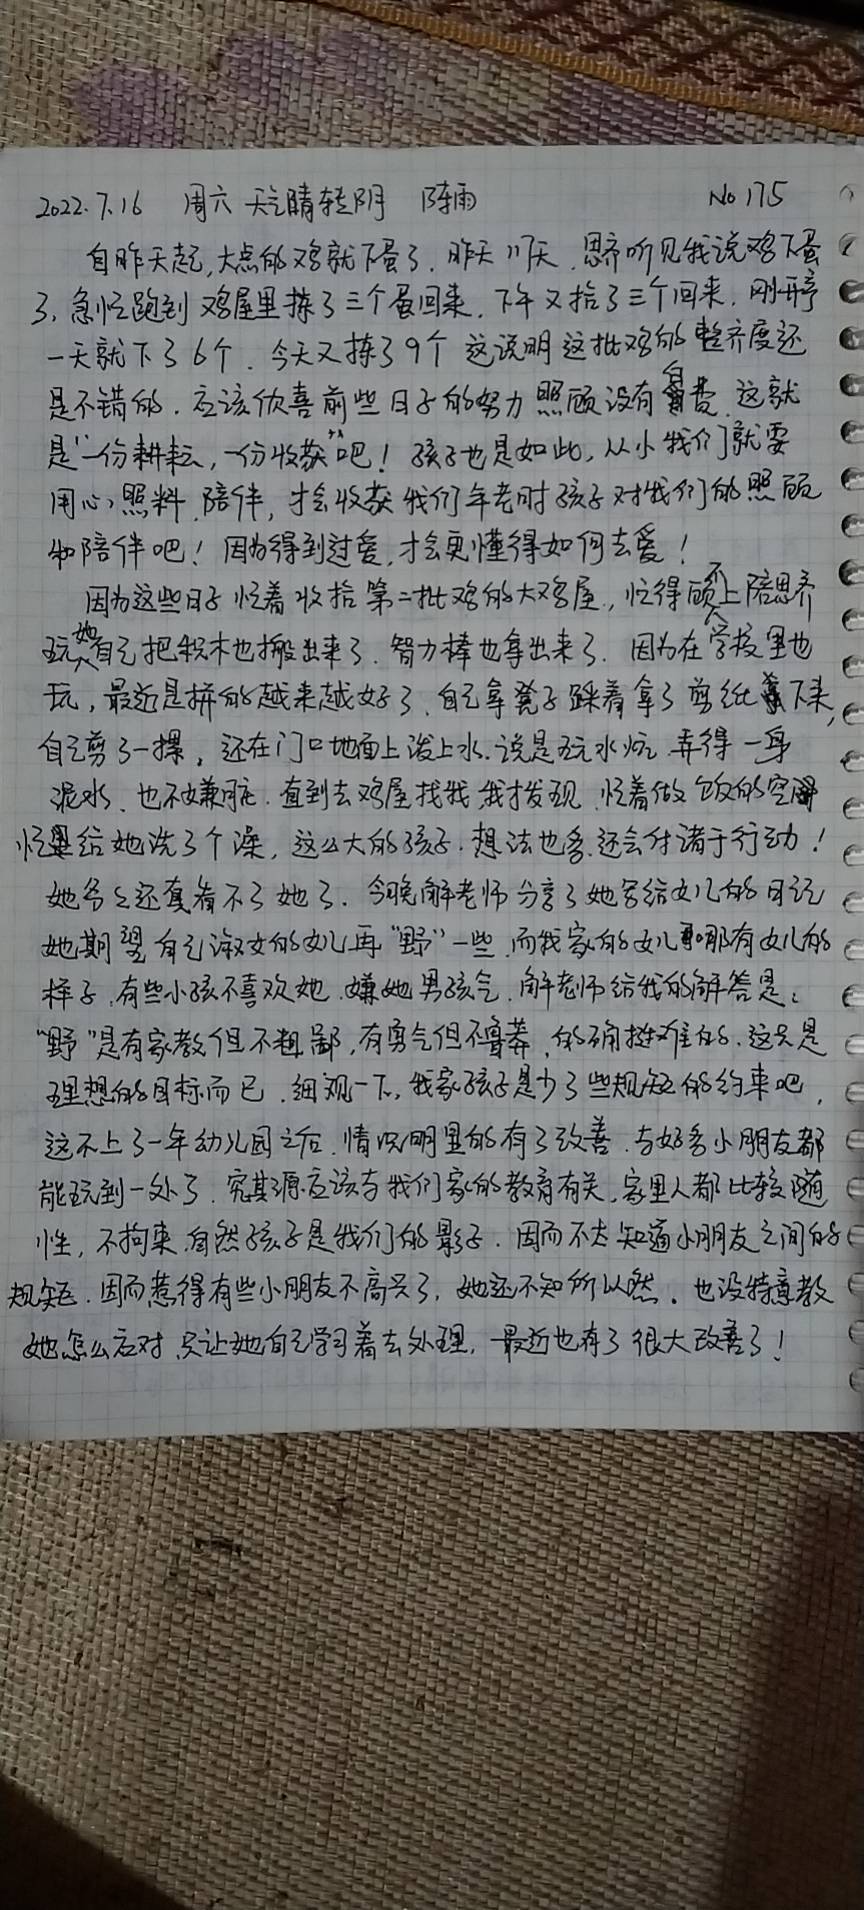 2022.7.16 周六 天气晴转阴 阵雨 No 175
自昨天起,大点的鸡就下蛋了.昨天 天.思齐听见我说鸡下蛋
了,急忙跑到鸡屋里拣了三个蛋回来.下午又拾了三个回来.刚开亭
一天就下了6个.今天又拣了9个 这说明这批鸡的整齐度还
是不错的.应该欣喜前些日子的努力照顾没有白费.这就
是"一份耕耘,一份收获"吧!孩子也是如此,从小我们就要
用心照料.陪伴,才会收获我们年老时孩子对我们的照顾
和陪伴吧!因为得到过爱,才会更懂得如何去爱!
因为这些日子忙着收拾第二批鸡的大鸡屋.,忙得顾不上陪思齐
玩她自己把积木也搬出来了.智力棒也拿出来了.因为在学校里也
玩,最近是拼的越来越好了.自己拿凳子踩着拿了剪纸 下来,
自己剪了一摞,还在门口地面上泼上水.说是玩水炕 弄得一身
泥水、也不嫌脏.直到去鸡屋找我我才发现.忙着做饭的空
忙 给她洗了个澡,这么大的孩子.想法也多.还会付诸于行动!
她爷爷还真看不了她了.今晚解老师分享了她写给女儿的日记
她期望自己淑女的女儿再"野"一些.而我家的女儿 哪有女儿的
样子.有些小孩不喜欢她.嫌她男孩气.解老师给我的解答是:
"野"是有家教但不粗鄙,有勇气但不鲁莽.的确挺难的.这只是
理想的目标而已.细观一下,我家孩子是少了些规矩的约束吧,
这不上了一年幼儿园之后.情况明显的有了改善.与好多小朋友都
能玩到一处了.究其源应该与我们家的教育有关,家里人都比较随
性,不拘束.自然孩子是我们的影子.因而不太知道小朋友之间的
规矩.因而惹得有些小朋友不高兴了,她还不知所以然.也没特意教
她怎么应对.只让她自己学习着去处理,最近也有了很大改善了!